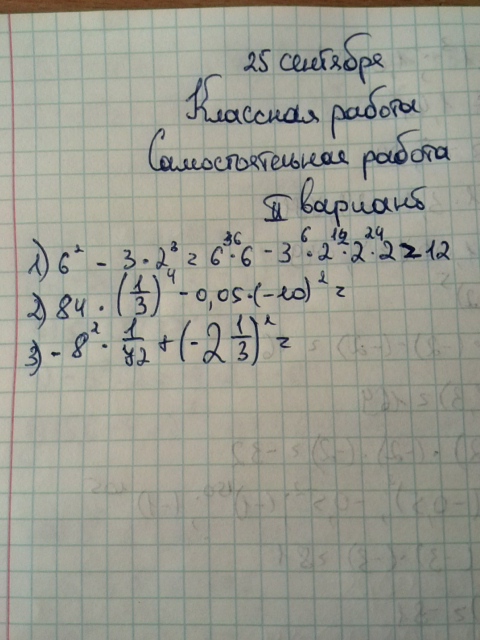 25 сентября
Классная работа
Самостоятельная работа
II вариант
1) 6² - 3 · 2³ = 6 · 6 - 3 · 2 · 2 · 2 = 12
36 6 12 24
2) 84 · (1/3)⁴ - 0,05 · (-20)² =
3) - 8² · 1/72 + (-2 1/3)² =